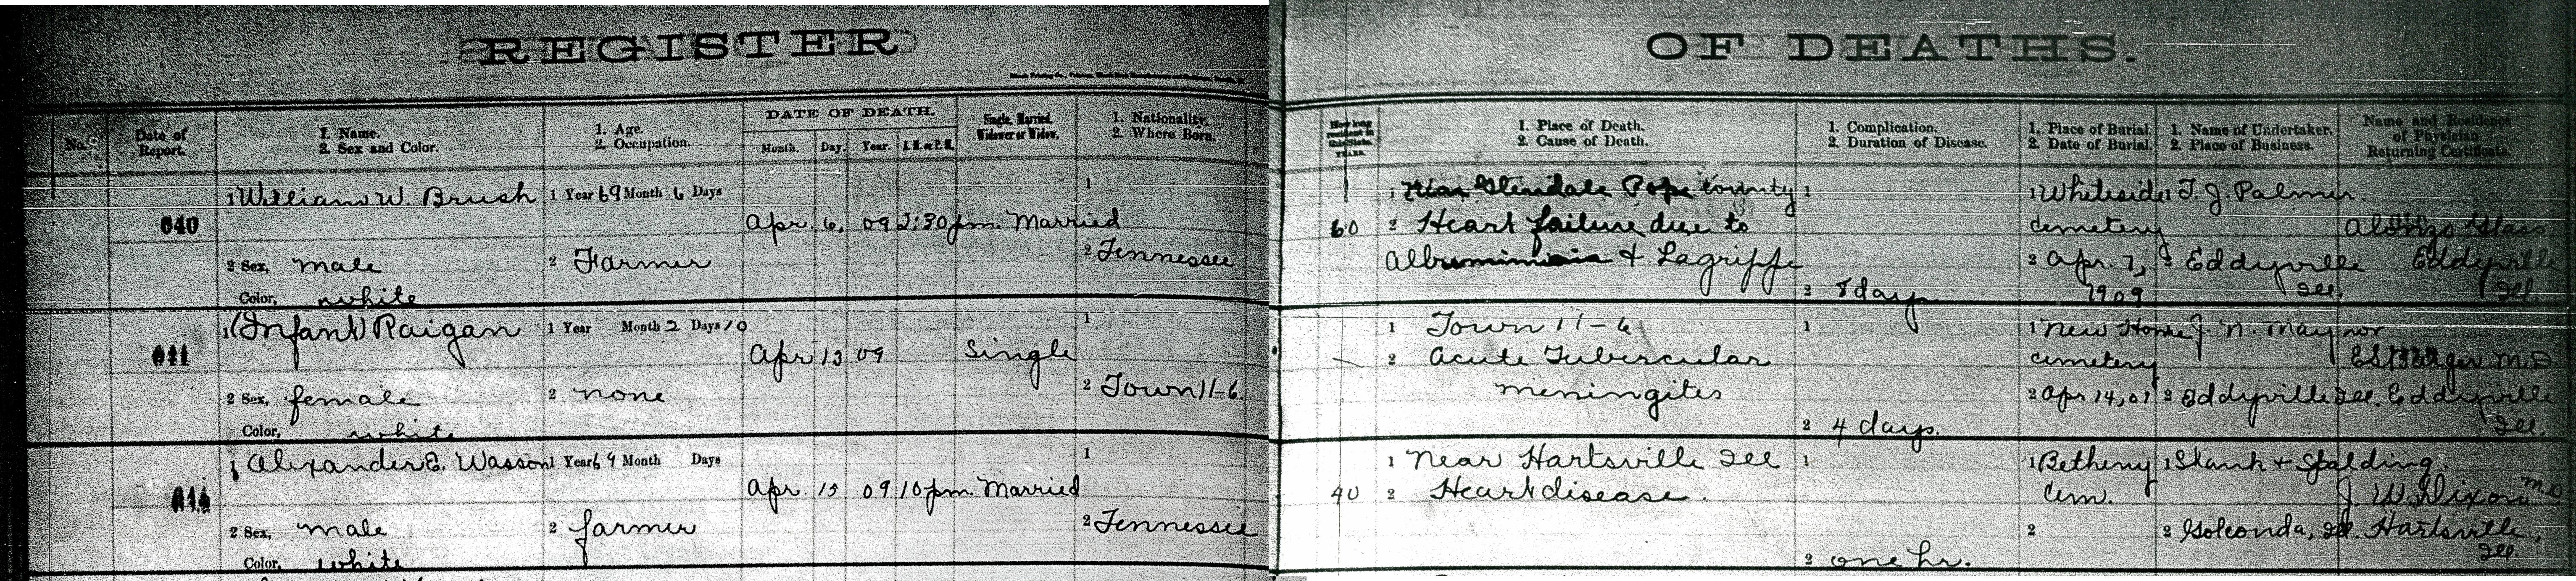 REGISTER OF DEATHS.
No. Date of Report. 1. Name. 2. Sex and Color. 1. Age. 2. Occupation. DATE OF DEATH. Month. Day. Year. A.M. or P.M. Single, Married, Widower or Widow. 1. Nationality. 2. Where Born. How long resident in this State. YEARS 1. Place of Death. 2. Cause of Death. 1. Complication. 2. Duration of Disease. 1. Place of Burial. 2. Date of Burial. 1. Name of Undertaker. 2. Place of Business. Name and Residence of Physician Returning Certificate.
1 William W. Brush 1 Year 69 Month 6 Days 1 1 Near Glendale Pope County 1 1 Whiteside 1 T. J. Palmer
640 Apr. 6, 09 2:30 pm. Married 60 2 Heart failure due to cemetery Alonzo
2 Sex, male 2 Farmer 2 Tennessee & Lagrippe 2 Apr. 7, 2 Eddyville Eddyville
Color, white 2 8 days 1909 Ill. Ill.
1 (Infant) Raigan 1 Year Month 2 Days 10 1 1 Town 11-6 1 1 New Home J. N. Maynor
641 Apr 13 09 Single 2 Acute Tubercular cemetery M.D.
2 Sex, female 2 none 2 Town 11-6. meningites 2 Apr 14, 2 Eddyville Ill. Eddyville
Color, white 2 4 days. Ill.
1 Alexander E. Wasson 1 Year 69 Month Days 1 1 Near Hartsville Ill 1 1 Betheny 1 & Spalding
Apr. 15 09 10 pm. Married 40 2 Heart disease. Cem. J. W. Dixon M.D.
2 Sex, male 2 farmer 2 Tennessee 2 2 Golconda, Ill. Hartsville,
Color, white 2 one hr. Ill